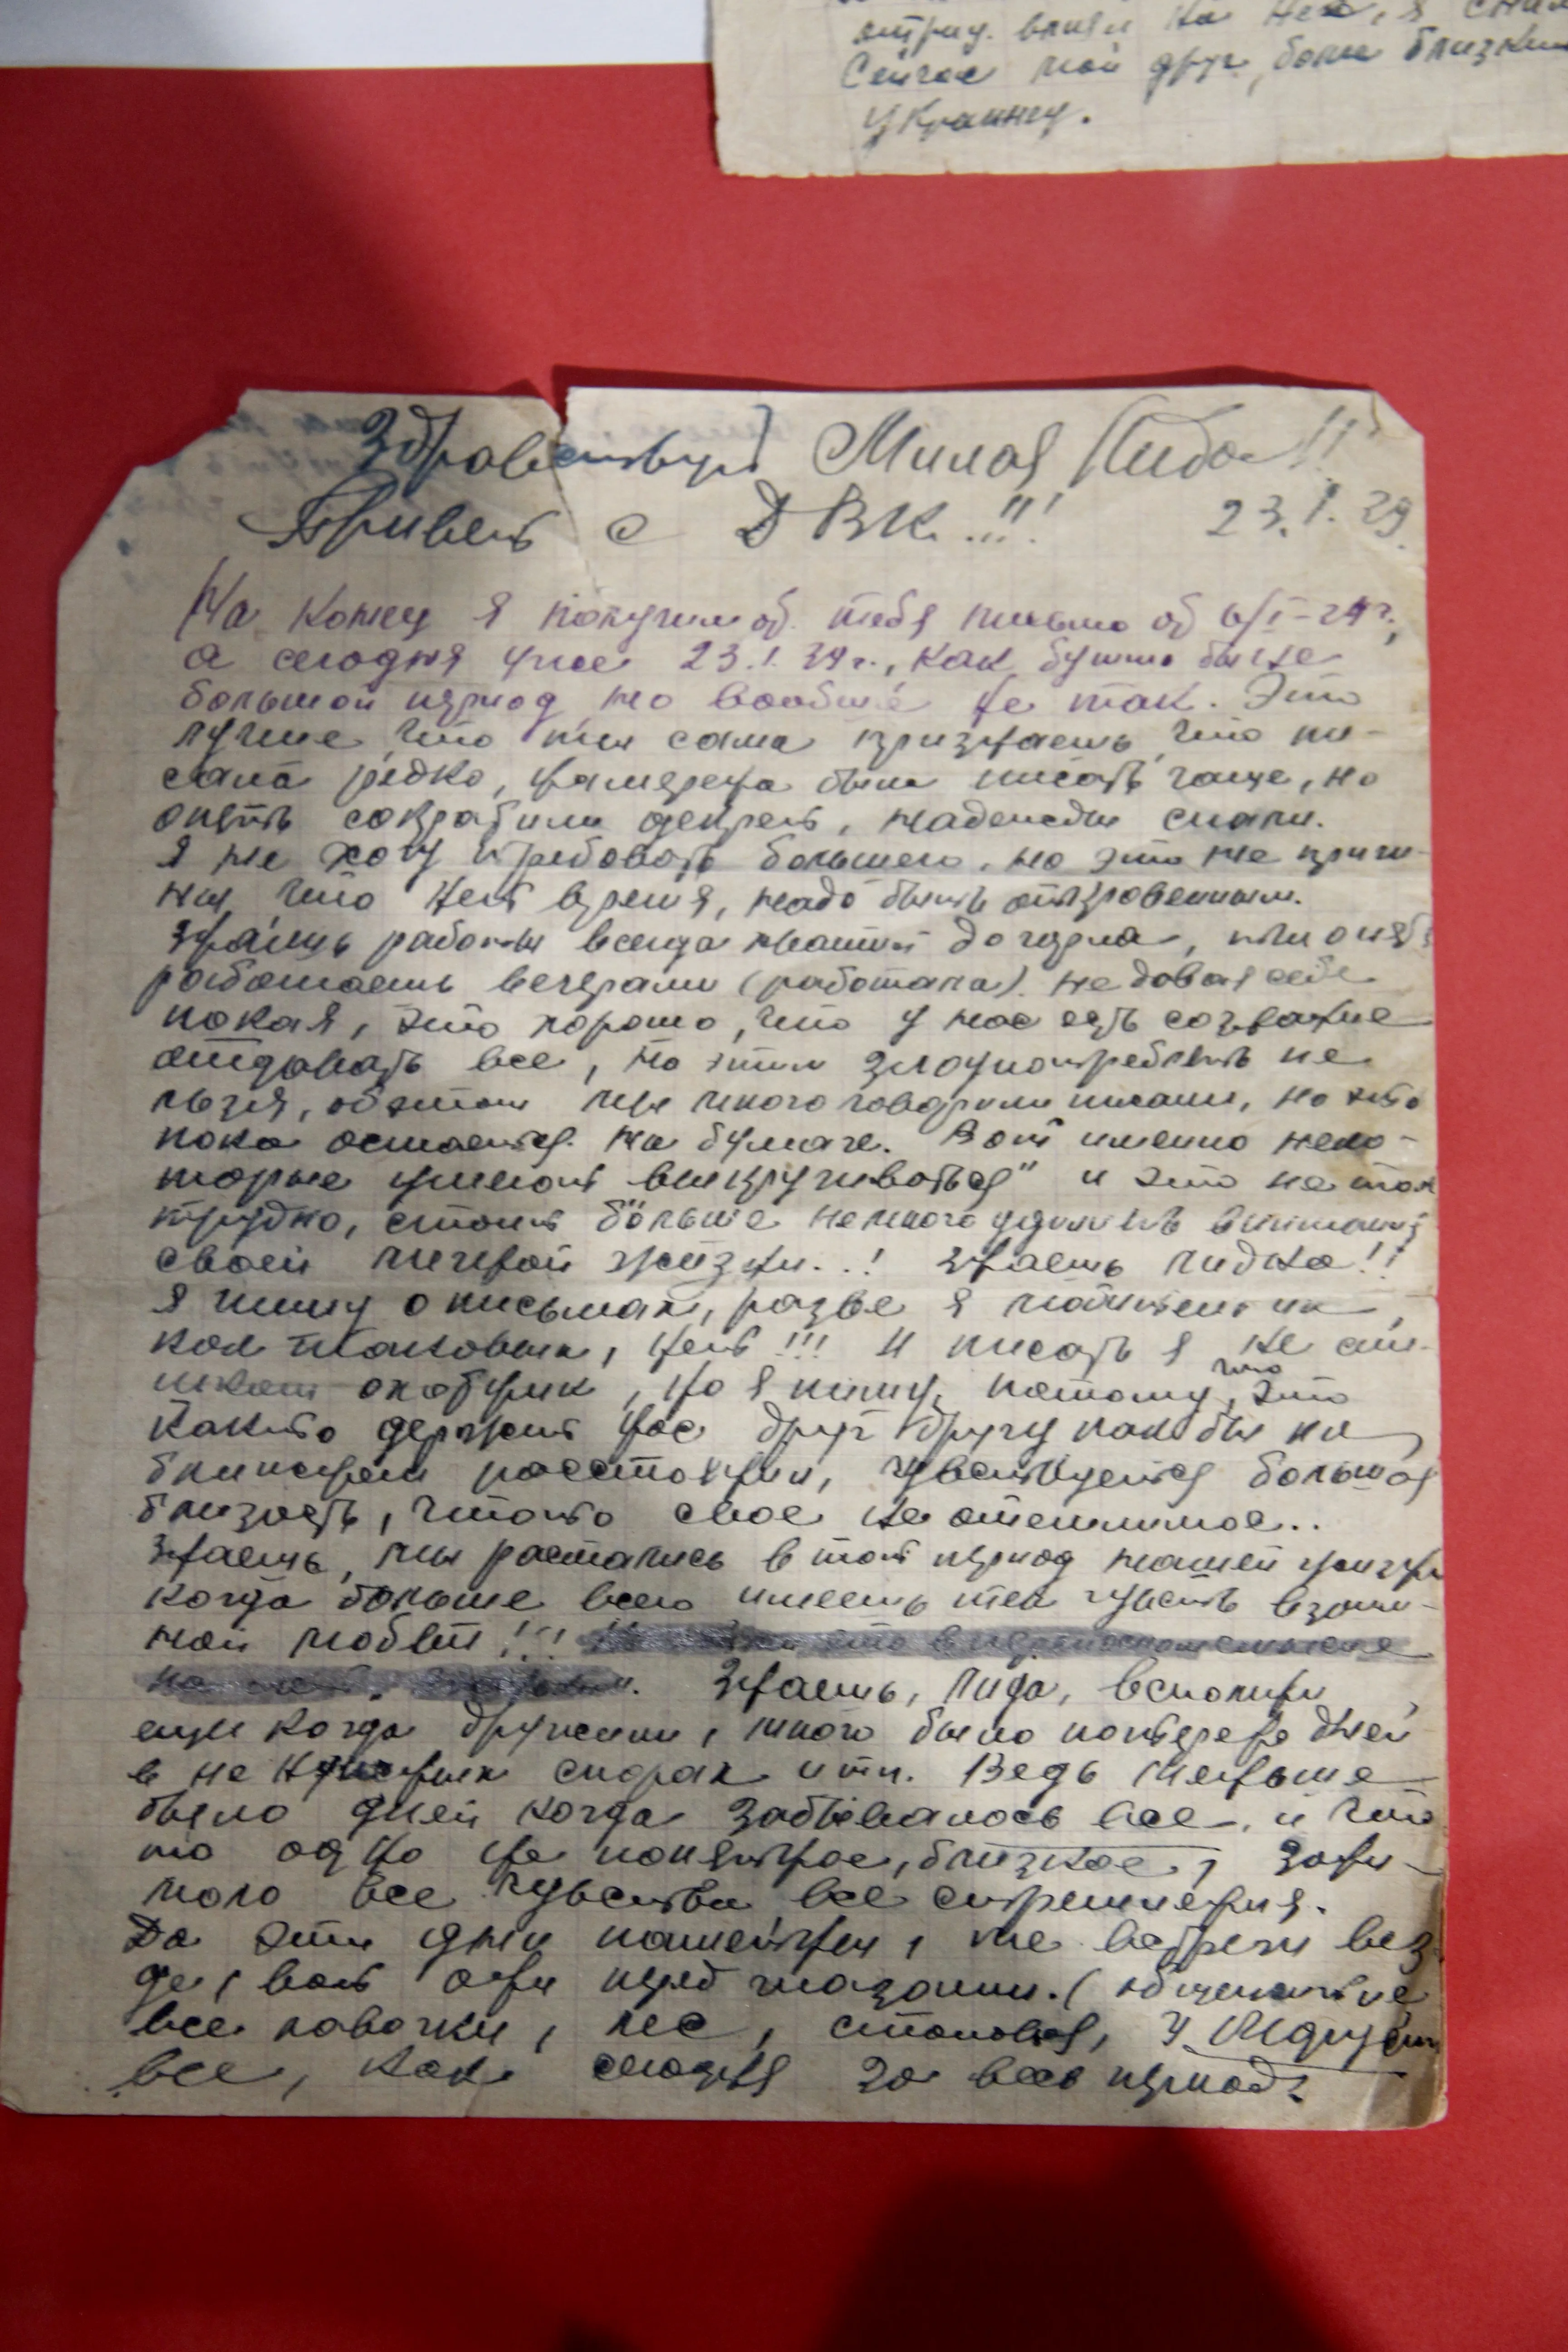 Сейчас мой друг, более близкий
Украинец.
Здравствуй Милая Лида!!
Привет с ДВК..!!!
23.I.39.
На конец я получил от тебя письмо от 6/I-39 г.,
а сегодня уже 23.I.39 г., как будто бы не
большой период но вообще не так. Это
лучше что ты сама признаешь что пи-
сала редко, намерена была писать чаще, но
опять сократили декрет, надежды спали.
Я не хочу требовать большего, но это не причи-
ны что нет время, надо быть откровенным.
Знаешь работы всегда хватит до горла, ты опять
работаешь вечерами (работала) не довая себе
покая, это хорошо, что у нас есть сознание
отдовать все, но этим злоупотреблять не
льзя, об этом мы много говорили писали, но это
пока остается на бумаге. Вот именно неко-
торые умеют выкручиваться" и это не так
трудно, стоит больше немного уделить внимания
своей личной жизни..! Знаешь Лидка!!
Я пишу о письмах, разве я
нет!!! И писать я не
но я пишу, потому что это
както держит нас друг другу как бы на
ближнем расстоянии, чувствуется большая
близость, чтото свое не отемлимое..
Знаешь, мы растались в тот период нашей жизни
когда больше всего имеешь тех чувств взаим-
ной любви!!!
Знаешь, Лида, вспомни
еще когда дружили, много было потеряно дней
в не нужных спорах и тп. Ведь меньше
было дней когда забывалось все, и что
то одно не понятное, близкое, зани-
мало все чувства все стремления.
Да эти дни памятны, те встречи вез
де, вот они перед глазами. (общежитие
все лавочки, лес, столовая, у
все, как сегодня за весь период